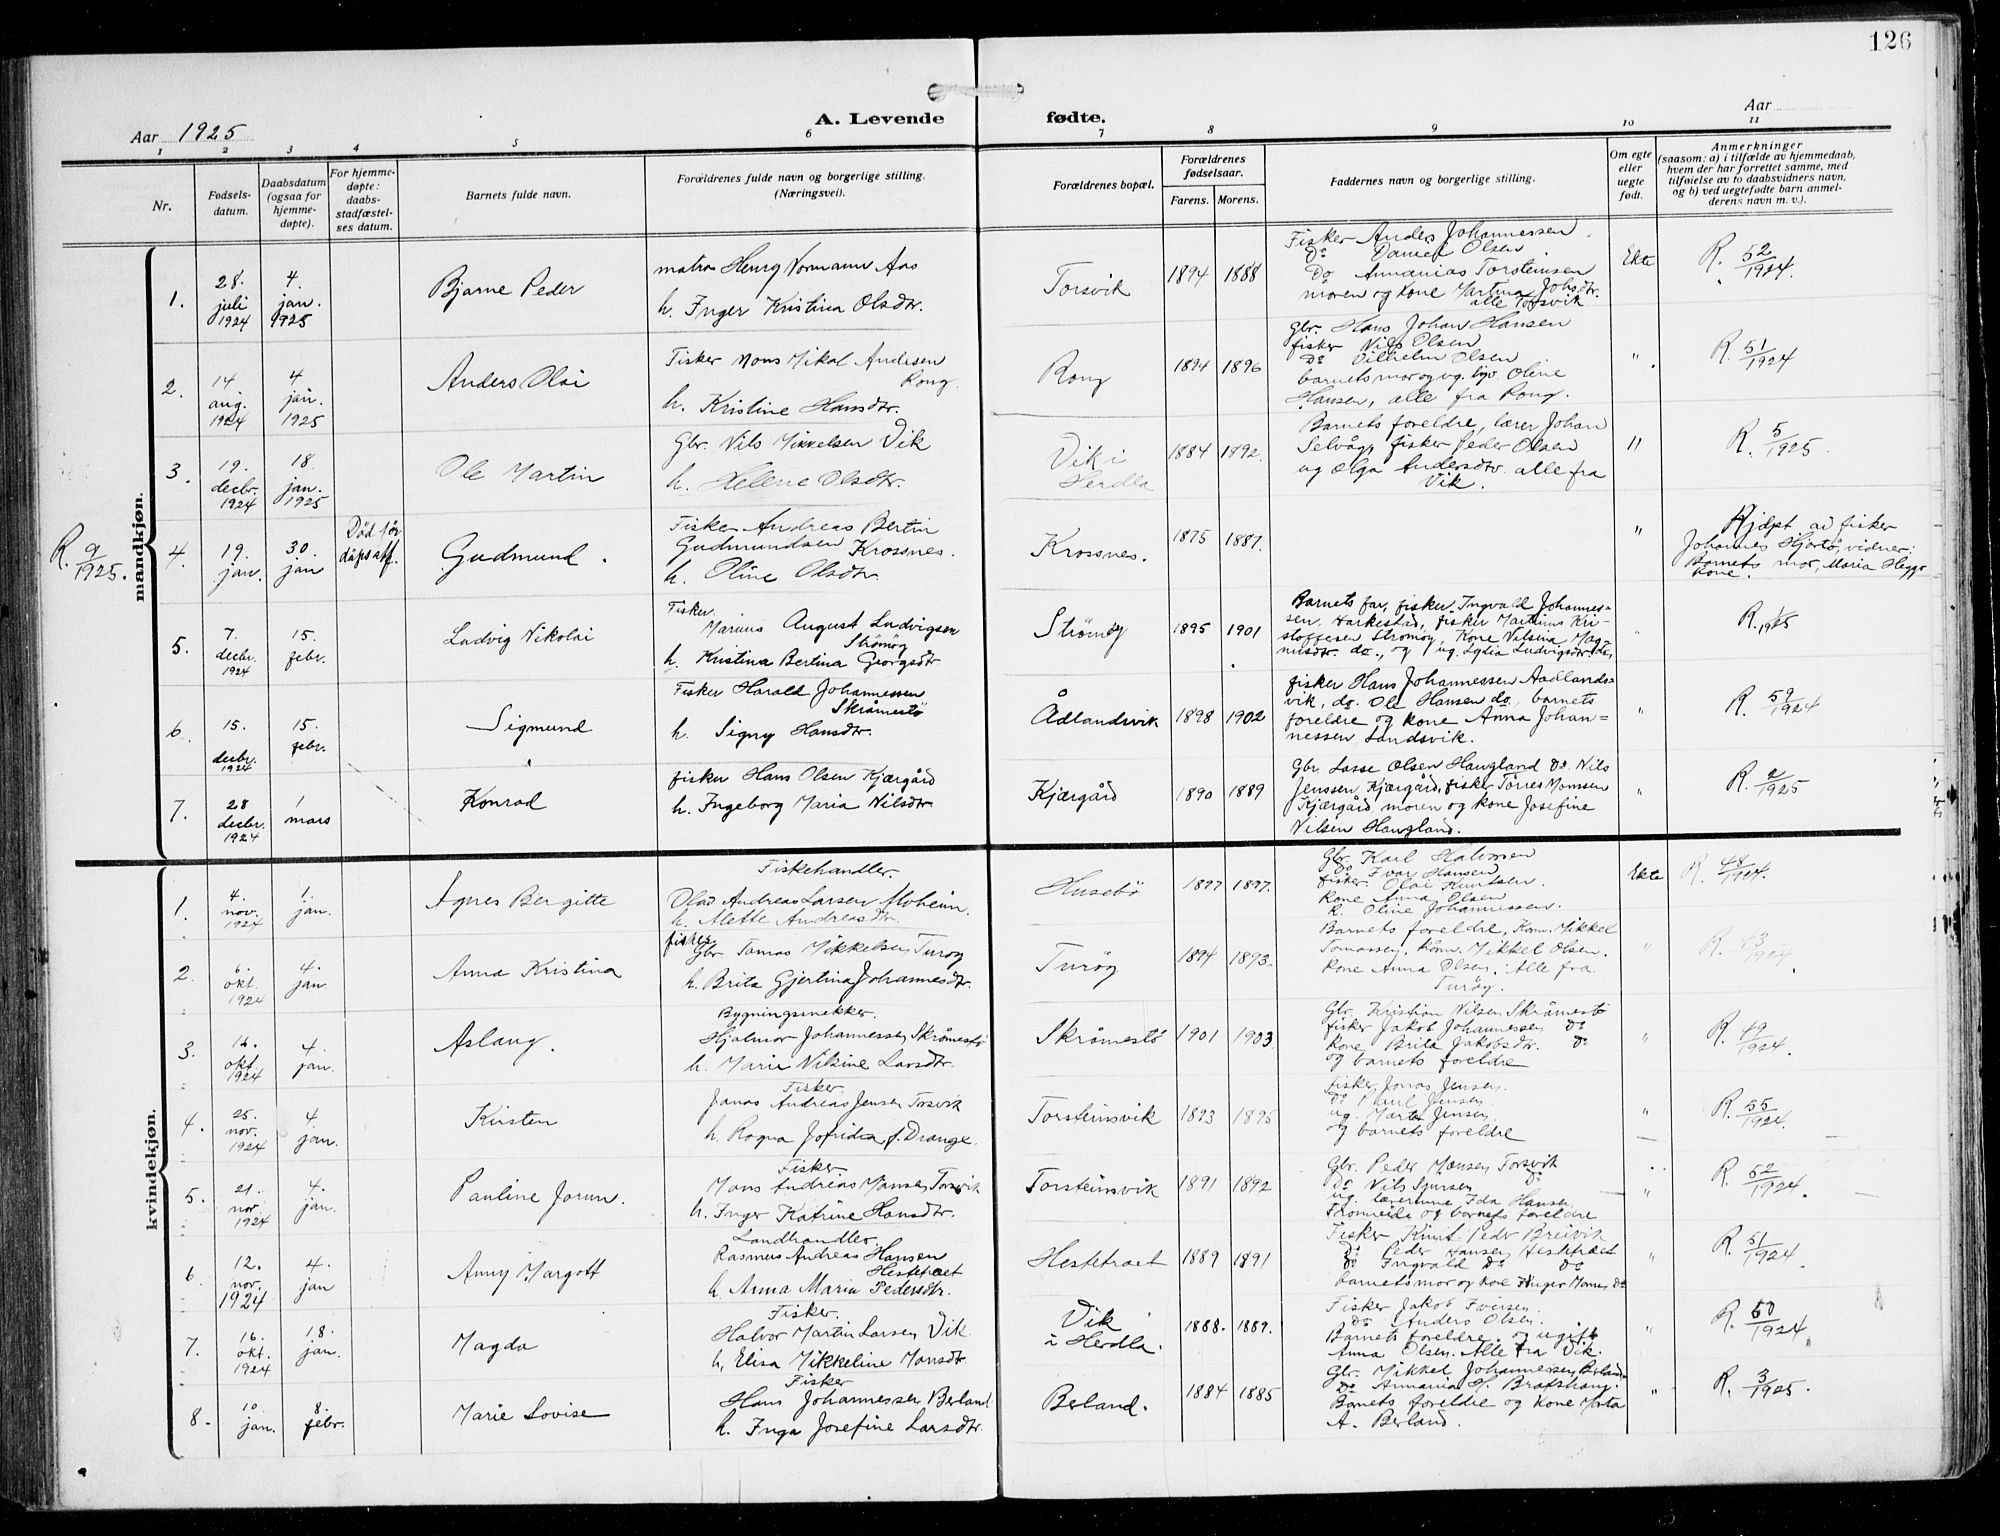 126
Aar 1925
A. Levende fødte.
Aar
1 2 3 4 5 6 7 8 9 10 11
Nr.
Fødsels-
datum.
Daabsdatum
(ogsaa for
hjemme-
døpte).
For hjemme-
døpte:
daabs-
stadfæstel-
ses datum.
Barnets fulde navn.
Forældrenes fulde navn og borgerlige stilling.
(Næringsvei).
Forældrenes bopæl.
Forældrenes
fødselsaar.
Farens. Morens.
Faddernes navn og borgerlige stilling.
Om egte
eller
uegte
født.
Anmerkninger
(saasom: a) i tilfælde av hjemmedaab,
hvem der har forrettet samme, med
tilføielse av to daabsvidners navn,
og b) ved uegtefødte barn anmel-
derens navn m. v.).
mandkjøn.
1.
28.
juli
1924
4.
jan.
1925
Bjarne Peder
matros Henry Normann Aas
h. Inger Kristina Olsdtr.
Torsvik
1894 1888
Fisker Anders Johannessen
Do Daniel Olsen
Do Annanias Torsteinsen
moren og kone Martina Johsdtr.
alle Torsvik
Ekte
R. 52/1924.
2.
14
aug.
1924
4
jan.
1925
Anders Olai
Fisker Mons Mikal Andersen
Rong.
h. Kristine Hansdtr.
Rong
1894 1896
Gbr. Hans Johan Hansen
fisker Nils Olsen
Do Vilhelm Olsen
barnets mor og ug. Oline
Hansen, alle fra Rong.
"
R. 51/1924
3.
19.
decbr.
1924
18
jan.
1925
Ole Martin
Gbr. Nils Mikkelsen Vik
h. Helene Olsdtr.
Vik i
Herdla
1884 1892.
Barnets foreldre, lærer Johan
Selvåg, fisker Peder Olsen
ug Olga Andersdtr. alle fra
Vik.
"
R. 5/1925.
R. 9/1925.
4.
19.
jan.
30.
jan
Død før
dåpsstf.
Gudmund.
Fisker Andreas Bertin
Gudmundsen Krossnes.
h. Oline Olsdtr.
Krossnes.
1875 1887.
"
Hjdpt av fisker
Johannes Hjortø, vidner:
Barnets mor, Maria Hegg
kone.
5.
7.
decbr.
1924
15.
febr.
Ludvig Nikolai
Fisker
Marius August Ludvigsen
Strömöy
h. Kristina Bertina Georgsdtr
Strømøy
1895 1901
Barnets far, fisker Ingvald Johannes-
sen, Harkestad, fisker Martinus Kri-
stoffersen Strømøy, Kone Nilsina Mag-
nusdtr. do., og ug. Lydia Ludvigsdtr. do.
"
R. 1/1925
6
15.
decbr.
1924
15.
febr.
Sigmund
Fisker Harald Johannessen
Skråmestö
h. Signy Hansdtr.
Ådlandsvik
1898 1902
fisker Hans Johannessen Aadlands-
vik, do. Ole Hansen do., barnets
foreldre og kone Anna Johan=
nessen Landsvik.
"
R. 59/1924
7.
28
decbr.
1924
1
mars
Konrad
fisker Hans Olsen Kjærgård
h. Ingeborg Maria Nilsdtr
Kjærgård
1890 1889
Gbr. Lasse Olsen Haugland Do. Nils
Jenssen Kjærgård, fisker Tørres Monssen
Kjærgård, moren og kone Josefine
Nilsen Haugland.
"
R. 2/1925
kvindekjøn.
1.
4.
nov.
1924
1.
jan.
Agnes Bergitte
Fiskehandler.
Olav Andreas Larsen Moheim.
h. Mette Andreasdtr.
Husebø
1897 1897.
Gbr. Karl Halvorsen
Do Ivar Hansen
fisker Olai Knutsen.
Kone Anna Olsen
K. Oline Johannessen.
Ekte
R. 48/1924.
2.
6.
okt.
1924
4.
jan.
Anna Kristina
fisker
Gbr. Tomas Mikkelsen Turøy
h. Brita Gjertina Johannesdtr.
Turöy
1894 1893.
Barnets foreldre, Konn. Mikkel
Tomassen, Konn. Mikkel Olsen.
Kone Anna Olsen. Alle fra
Turöy.
"
R. 43/1924
3.
okt.
1924
4.
jan.
Aslaug.
Bygningssnekker.
Hjalmar Johannessen Skråmestø
h. Marie Nilsine Larsdtr.
Skråmestö
1901 1903
Gbr. Kristian Nilsen Skråmestö
fisker Jakob Johannessen Do
Kone Brita Jakobsdtr. Do
og barnets foreldre
"
R. 49/1924.
4.
25.
nov.
1924
4
jan.
Kirsten
Fisker
Jonas Andreas Jensen Torsvik
h. Ragna Jofrida f. Drange.
Torsteinsvik
1893 1895
Fisker Jonas Jensen.
Do Paul Jensen
ug. Marta Jensen
og barnets foreldre
"
R. 55/1924.
5.
21.
nov.
1924
4.
jan.
Pauline Jorun.
Fisker
Mons Andreas Monsen Torsvik
h. Inger Katrine Hansdtr.
Torsteinsvik
1891 1892
Gbr. Peder Monsen Torsvik
Do Nils Sjursen Do
ug. lærerinne Ida Hansen
og barnets foreldre
"
R. 52/1924.
6.
12.
nov.
1924
4.
jan
Anny Margott
Landhandler.
Rasmus Andreas Hansen
Hestetræet
h. Anna Maria Pedersdtr.
Hestetraet
1889 1891
Fisker Knut Peder Breivik
Do Peder Hansen Hestetræet
Do Ingvald Do Do
barnets mor og kone Inger Mons. Do
"
R. 51/1924
7.
16.
okt.
1924
18.
jan.
Magda
Fisker.
Halvor Martin Larsen Vik.
h. Elisa Mikkeline Monsdtr
Vik
i Herdla.
1888. 1889.
Fisker Jakob Iversen.
Do Anders Olsen.
Barnets foreldre, og ugift
Anna Olsen. Alle fra Vik.
"
R. 50/1924
8.
10.
jan.
8.
febr.
Marie Lovise
Fisker
Hans Johannessen Berland
h. Inga Josefine Larsdtr.
Berland.
1884 1885
Gbr. Mikkel Johannessen, Berland
Do Annania H. Bratshaug.
Barnets foreldre og Kone Marta
A. Berland.
"
R. 3/1925.